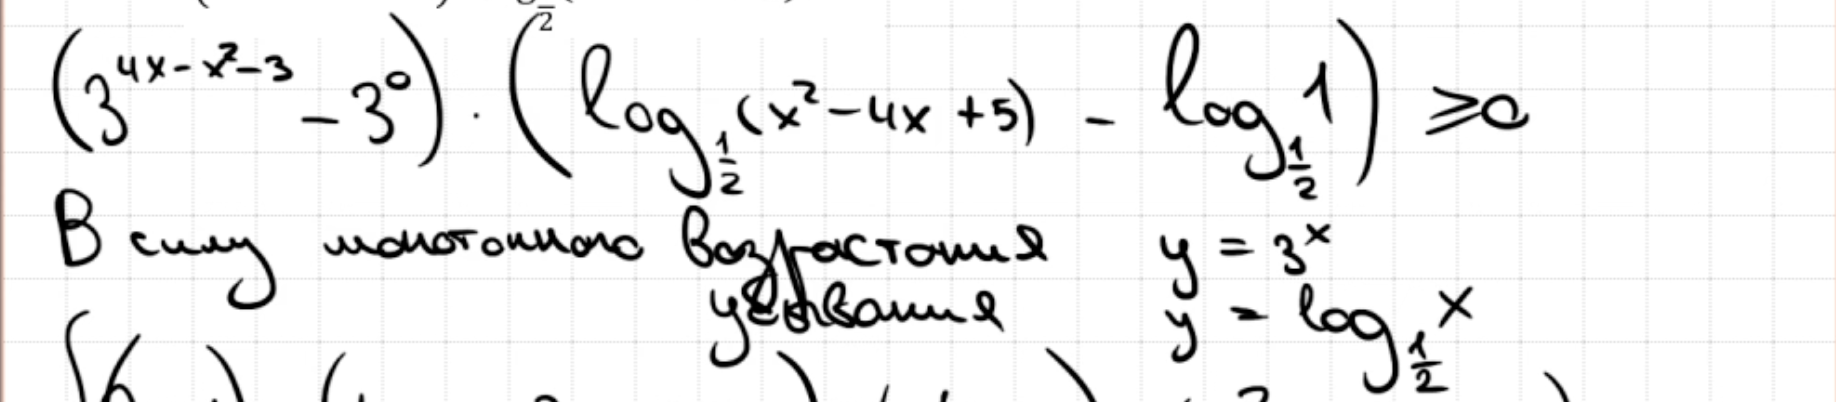 (3^{4x-x^2-3} - 3^0) · (log_{1/2}(x^2-4x+5) - log_{1/2}1) ⩾ 0
В силу монотонного возрастания y = 3^x
убывания y = log_{1/2}x